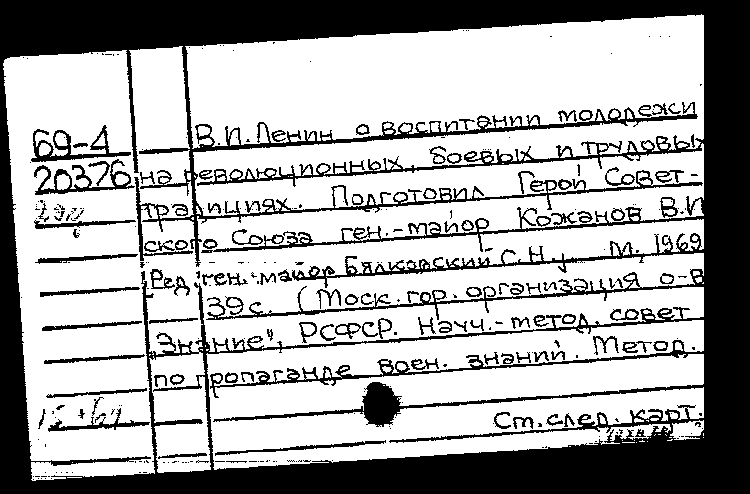 69-4 В.И.Ленин о воспитании молодежи
20376 на революционных, боевых и трудовых
2экз традициях. Подготовил Герой Совет-
ского Союза ген.-майор Кожанов В.И
Ред. ген.-майор Бялковский С.Н. М., 1969
39с. (Моск. гор. организация о-в
"Знание", РСФСР. Науч.-метод. совет
по пропаганде воен. знаний. Метод.
Ст. след. карт.